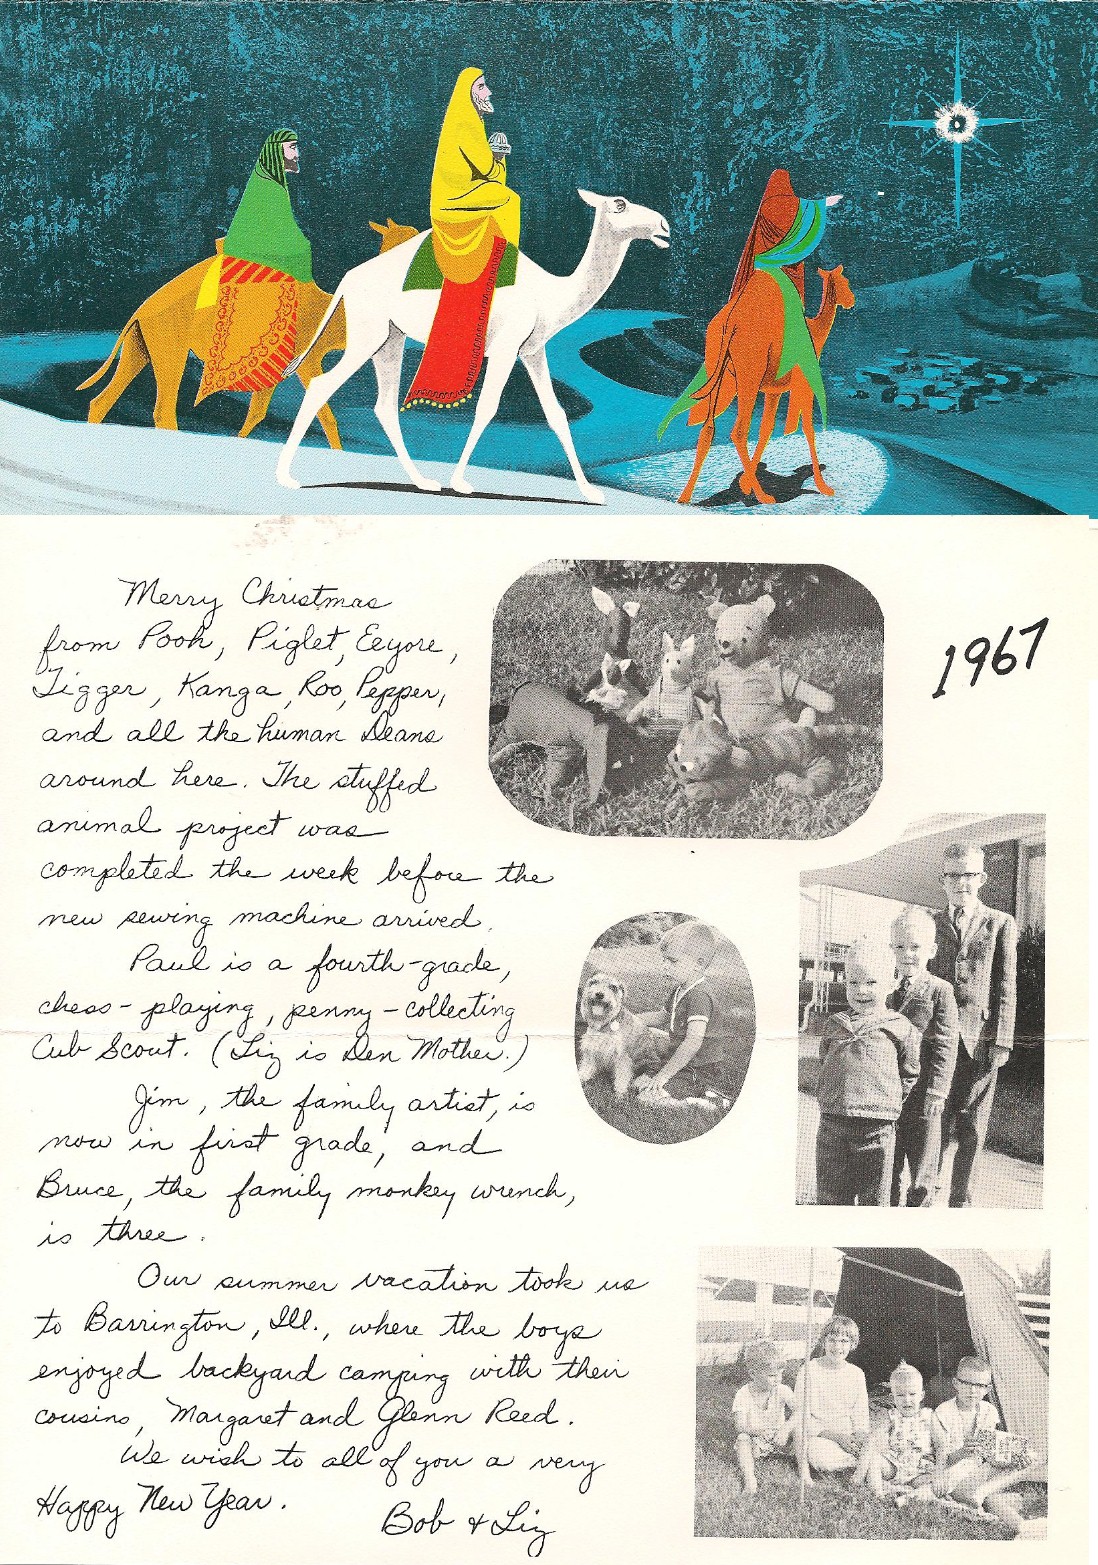 Merry Christmas
from Pooh, Piglet, Eeyore,
Tigger, Kanga, Roo, Pepper,
and all the human Deans
around here. The stuffed
animal project was
completed the week before the
new sewing machine arrived.
Paul is a fourth-grade,
chess-playing, penny-collecting
Cub Scout. (Liz is Den Mother.)
Jim, the family artist, is
now in first grade, and
Bruce, the family monkey wrench,
is three.
Our summer vacation took us
to Barrington, Ill., where the boys
enjoyed backyard camping with their
cousins, Margaret and Glenn Reed.
We wish to all of you a very
Happy New Year.
Bob & Liz
1967